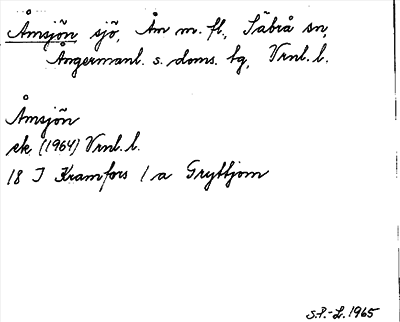 Åmsjön sjö, Ån m. fl., Säbrå sn,
Ångermanl. s. doms. tg, Vrnl. l.
Åmsjön
ek (1964) Vrnl. l.
18 I Kramfors 1 a Gryttjom
S.P.-L. 1965